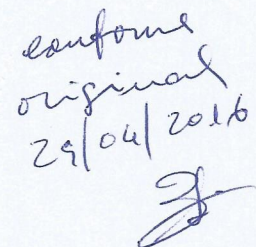 conforme
original
29/04/2016